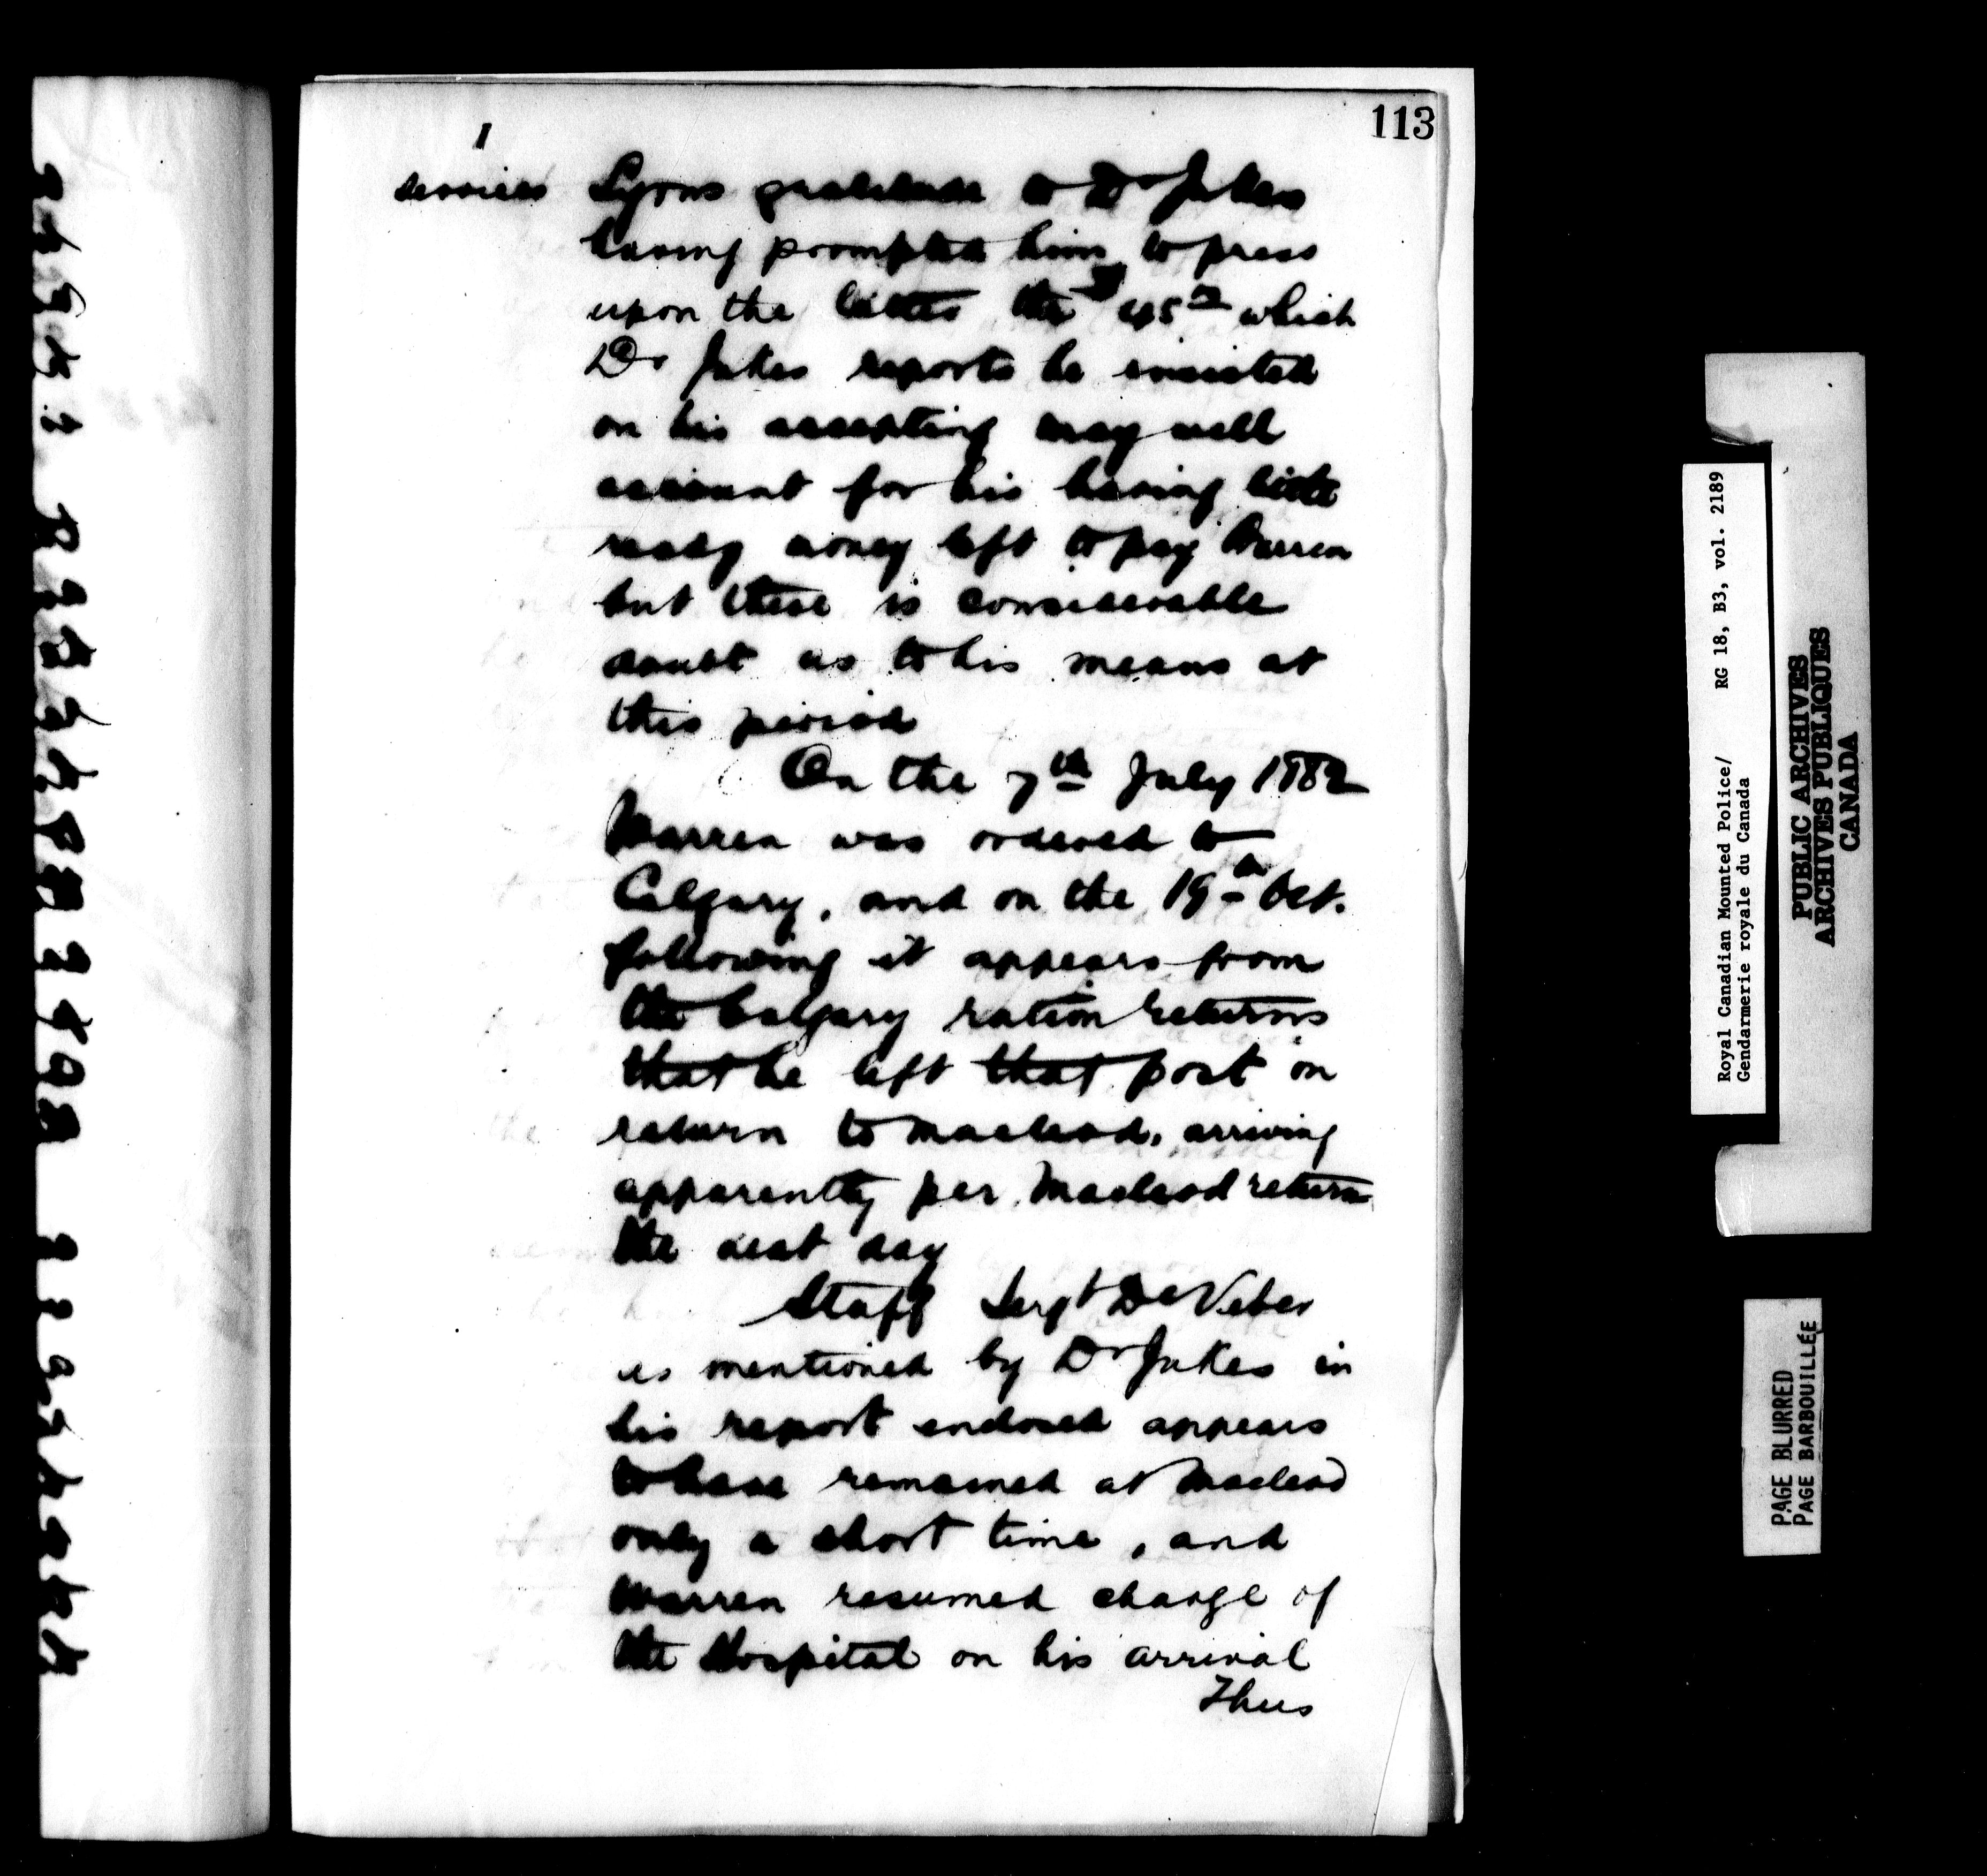 113
1
services Lyons gratitude to Dr Jukes
having prompted him to press
upon the latter the $45 which
Dr Jukes reports he insisted
on his accepting may well
account for his having little
ready money left to pay Warren
but there is considerable
doubt as to his means at
this period
On the 7th July 1882
Warren was ordered to
Calgary, and on the 19th Oct.
following it appears from
the Calgary ration returns
that he left that post on
return to Macleod, arriving
apparently per Macleod return
the next day
Staff Sergt De Veber
as mentioned by Dr Jukes in
his report enclosed appears
to have remained at Macleod
only a short time, and
Warren resumed charge of
the Hospital on his arrival
Thus
Royal Canadian Mounted Police/ RG 18, B3, vol. 2189
Gendarmerie royale du Canada
PUBLIC ARCHIVES
ARCHIVES PUBLIQUES
CANADA
PAGE BLURRED
PAGE BARBOUILLÉE